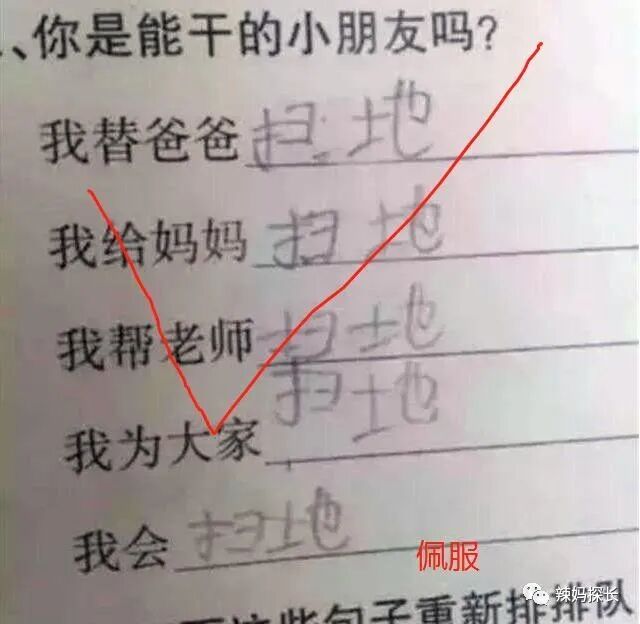 、你是能干的小朋友吗?
我替爸爸扫地
我给妈妈扫地
我帮老师扫地
我为大家扫地
我会扫地
佩服
些句子重新排排队
辣妈探长